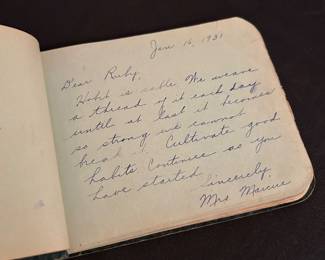 Jan 16, 1931
Dear Ruby,
Habit is cable. We weave
a thread of it each day
until at last it becomes
so strong we cannot
break Cultivate good
habits. Continue as you
have started
Sincerely,
Mrs Marcue